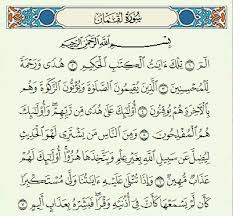 سُورَةُ لُقْمَان
بِسْمِ ٱللَّهِ ٱلرَّحْمَٰنِ ٱلرَّحِيمِ
الٓمٓ ١ تِلْكَ ءَايَٰتُ ٱلْكِتَٰبِ ٱلْحَكِيمِ ٢ هُدًى وَرَحْمَةً
لِّلْمُحْسِنِينَ ٣ ٱلَّذِينَ يُقِيمُونَ ٱلصَّلَوٰةَ وَيُؤْتُونَ ٱلزَّكَوٰةَ وَهُم
بِٱلْءَاخِرَةِ هُمْ يُوقِنُونَ ٤ أُو۟لَٰٓئِكَ عَلَىٰ هُدًى مِّن رَّبِّهِمْ وَأُو۟لَٰٓئِكَ
هُمُ ٱلْمُفْلِحُونَ ٥ وَمِنَ ٱلنَّاسِ مَن يَشْتَرِى لَهْوَ ٱلْحَدِيثِ
لِيُضِلَّ عَن سَبِيلِ ٱللَّهِ بِغَيْرِ عِلْمٍ وَيَتَّخِذَهَا هُزُوًا أُو۟لَٰٓئِكَ لَهُمْ
عَذَابٌ مُّهِينٌ ٦ وَإِذَا تُتْلَىٰ عَلَيْهِ ءَايَٰتُنَا وَلَّىٰ مُسْتَكْبِرًا
كَأَن لَّمْ يَسْمَعْهَا كَأَنَّ فِىٓ أُذُنَيْهِ وَقْرًا فَبَشِّرْهُ بِعَذَابٍ أَلِيمٍ ٧